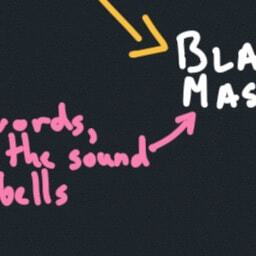 BLA
MAS
words,
the sound
bells